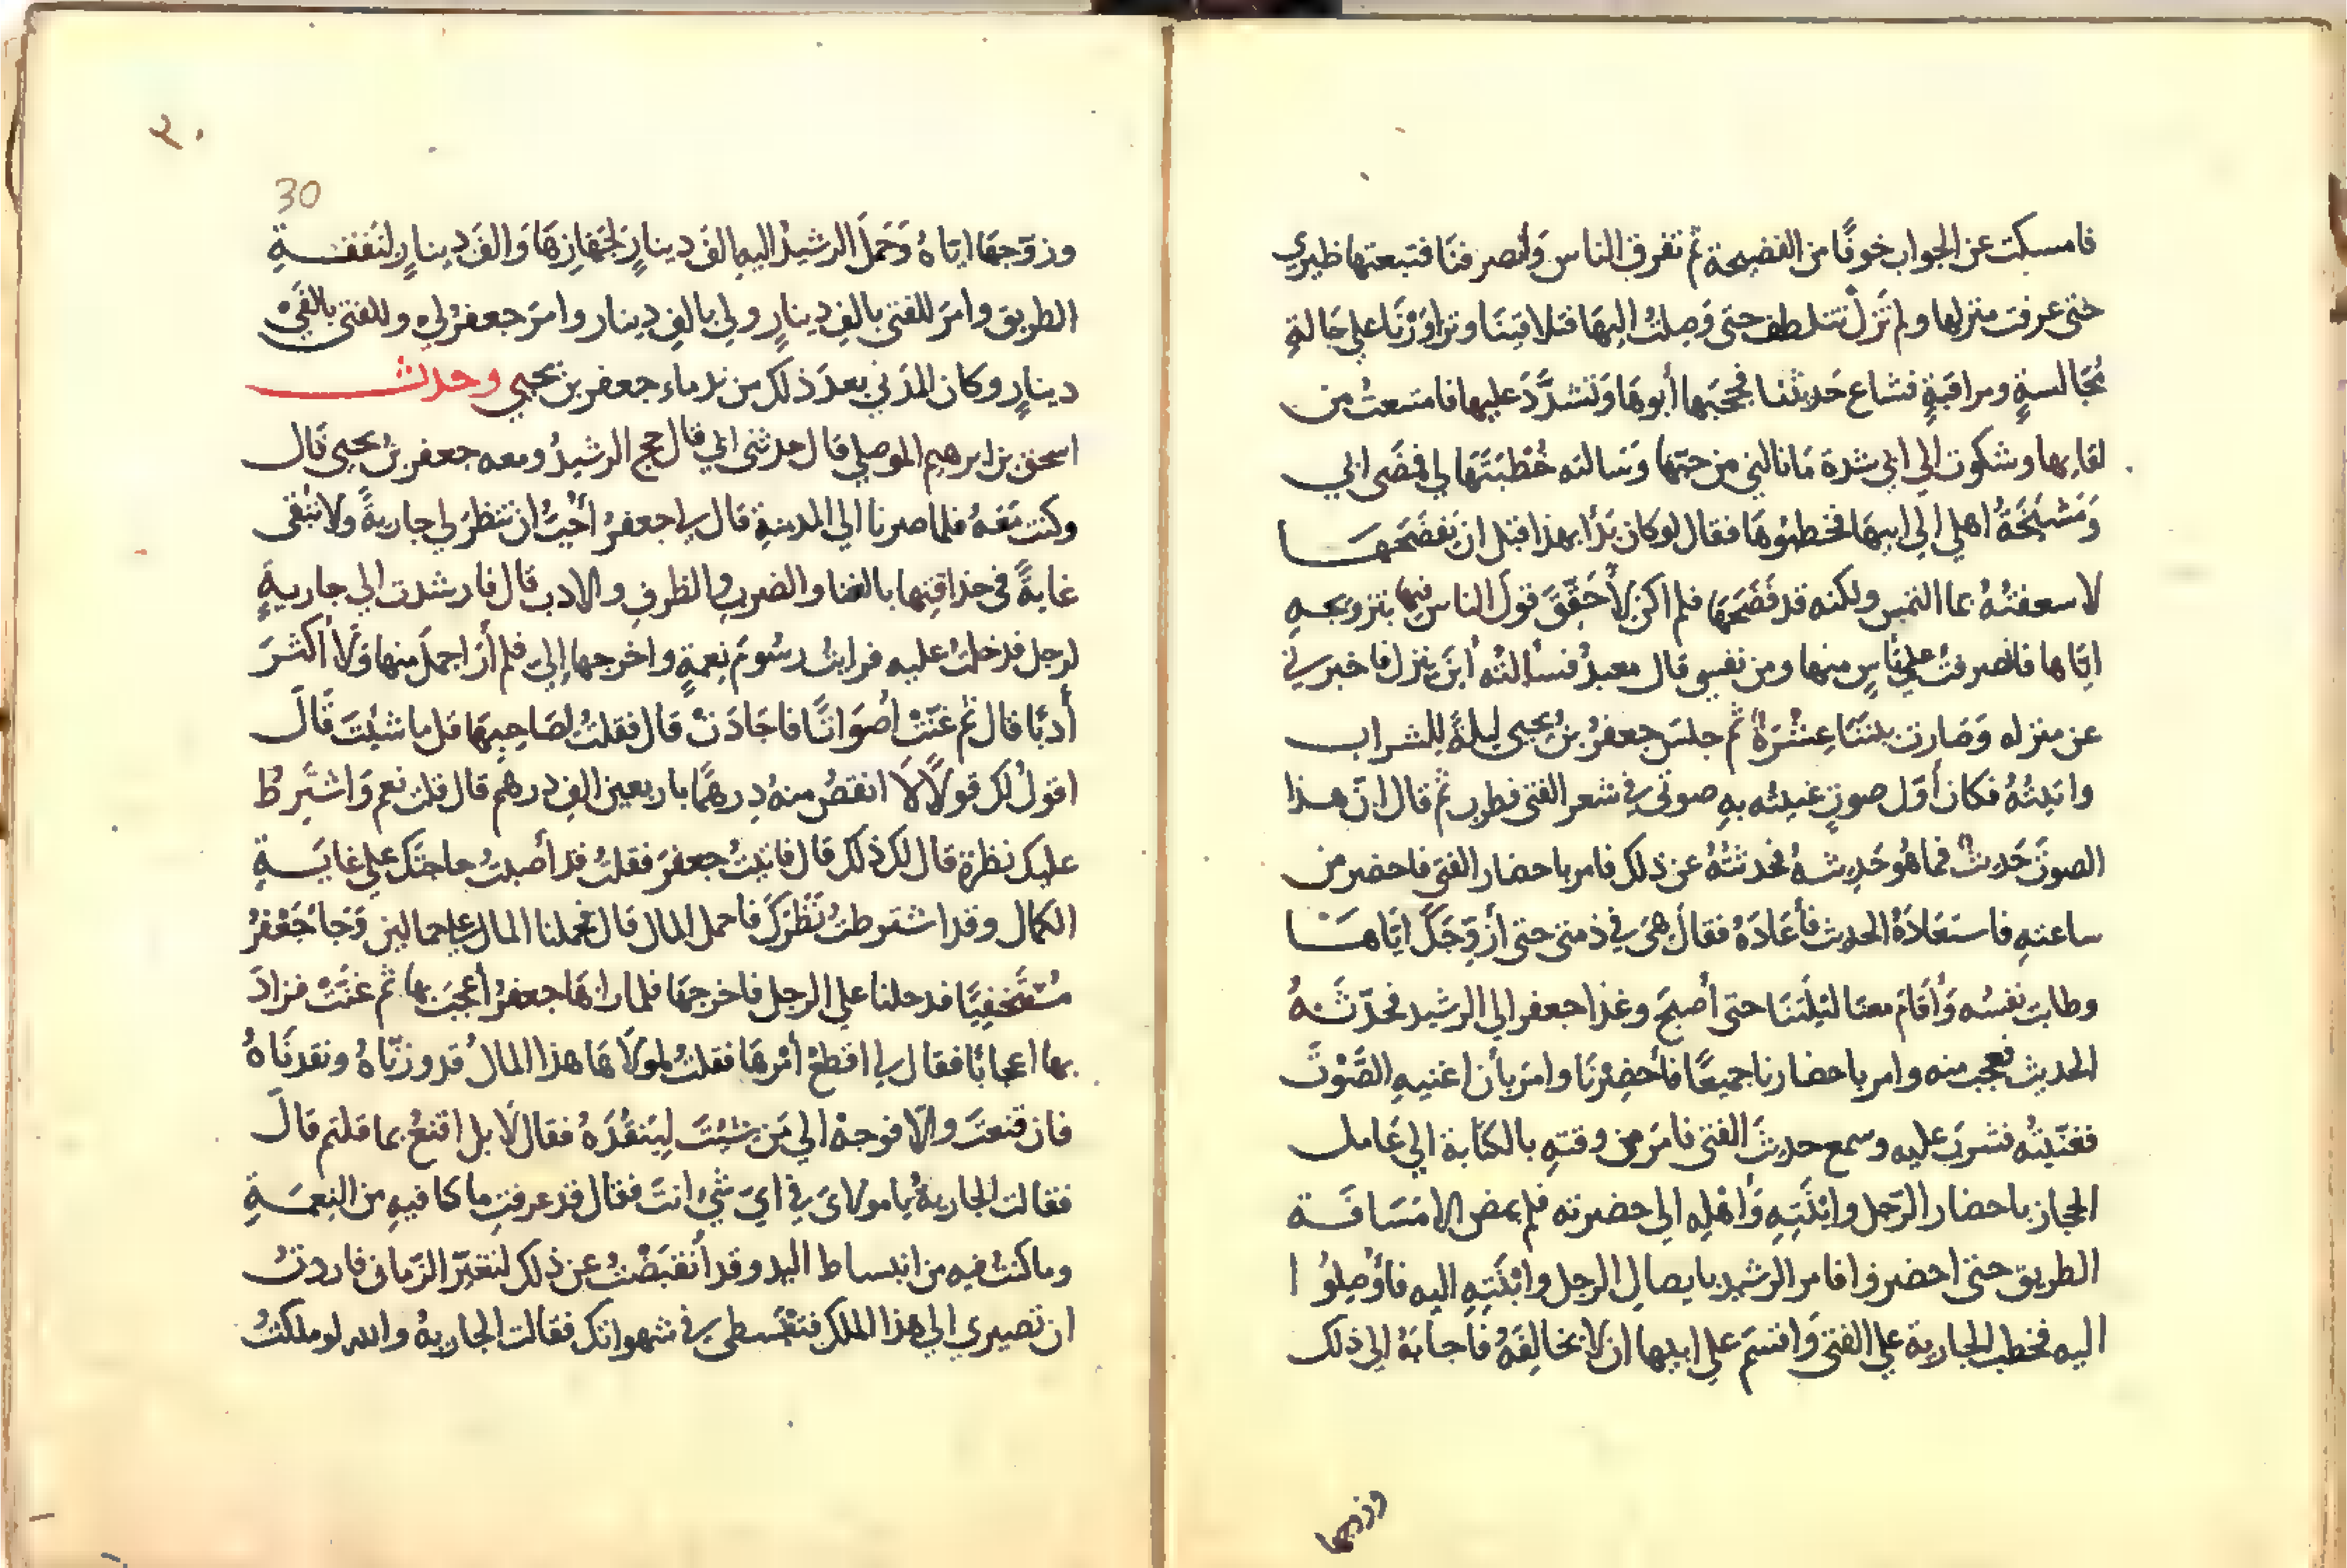 فامسكت عن الجواب خوفًا من الفضيحة ثم تفرق الناس وأنصرفنا فتبعتها ظيري
حتى عرفت منزلها ولم تَزلْ تتلطف حتى وَصِلتُ اليهَا فتلاقينَا وتزاوَرْنَا على حَالةِ
مُجَالسةٍ ومراقبَةٍ فشاع حَديثنا فحجَبَها أبوهَا وَتَشدَّدَ عليها فامتنعتْ من
لقايها وشكوت الى ابي شدة مَا نالني من حبّها وَسَالته خُطْبَتَهَا لي فمضَى ابي
وَمَشيَخَةُ اهلي الى ابيهَا فخطبُوهَا فقال لو كان بَدَأ بهذا قبل ان يَفضَحهَا
لاسعفتُهُ بما التمس ولكنه قد فَضَحَهَا فلم اكن لأُحَقِّقَ قولَ الناس فيها بتزويجهِ
ايّاها فانصرفتُ على يأسٍ منها ومن نفسي قال معبدٌ فسألتُه أينَ ينزل فاخبرني
عن منزله وَصَارت بيننَا عِشْرَةٌ ثم جلسَ جعفرُ بنُ يحيى ليلةً للشراب
واتيتُهُ فكان أوّل صوتٍ غنيته بهِ صوتي في شعر الفتى فطرب ثم قال انّ هذا
الصوتَ حَديثٌ فما هُو حَديثهُ فحدثتُهُ عن ذلك فامر باحضار الفتى فاحضر من
ساعتهِ فاستَعَادَهُ الحديث فأعَادَهُ فقال هىَ في ذمتى حتى أُزَوِّجَكَ ايَّاهَا
وطابت نفسُه وَأقَامَ معنَا ليْلَتَنَا حتى أصبحَ وغدا جعفر الى الرشيد فحَدّثَهُ
الحديث فعجب منه وامر باحضارنا جميعًا فأحضِرْنَا وامَرَ بأن اغنيهِ الصَّوْتَ
فغنّيتُه فشربَ عليه وسمع حديثَ الفتى فامَرَ من وقتهِ بالكتابة الى عَامل
الحجاز باحضار الرّجل وابْنَتِهِ وَأهْلِهِ الى حضرته فلم يمض الا مَسَافَة
الطريق حتى احضروا فامر الرشيد بايصال الرجل وابْنَتِهِ اليه فأوصِلُوا
اليه فخطب الجارية على الفتى وَاقسَم على ابيها ان لا يخالِفَهُ فأجابَهُ الى ذلك
وزوجها
٣٠
30
وزوّجهَا ايّاهُ وَحَمَلَ الرشيدُ اليهِ الفَ دينارٍ لجَهَازِهَا وَالفَ دينارٍ لنَفقةِ
الطريق وامَرَ للفتى بالفِ دينارٍ ولى بالفِ دينار وامَرَ جعفرٌ لى وللفتى بالفَيْ
دينارٍ وكان المدنى بعدَ ذلك من ندماء جعفر بن يحيى وحدث
اسحق بن ابرهيم الموصلي قال حدثنى ابي قال حج الرشيدُ ومعه جعفر بنُ يحيى قال
وكنت مَعَهُ فلما صرنا الى المدينةِ قال لى جعفرُ أُحِبُّ ان تنظرَ لى جاريةً ولا تُبْقى
غايةً فى حذاقتِها بالغنا والضرب والظرف والادب قال فارشدت الى جاريةٍ
لرجل فدخلتُ عليه فرايتُ رسُومَ نِعمةٍ واخرجها إلى فلم أرَ اجملَ منها ولا أكثرَ
أدبًا قال ثم غَنّتْ أصوَاتًا فاجَادَتْ قال فقلتُ لصَاحِبِهَا قل ما شئتَ قَالَ
اقولُ لك قولاً لاَ انقصُ منهُ دِرهمًا باربعين الف درهم قال قلت نعم وَاشتَرِطُ
عليك نظرة قال لك ذلك قال فاتيتُ جعفرَ فقلتُ قد أصبتُ حاجتَك على غَايَةِ
الكمال وقد اشترطتُ نَظَرَكَ فاحمل المال قال فحملنا المال على حمالين وَجَا جَعْفرُ
مُستَخفِيًا فدخلنا على الرجل فاخرجهَا فلما راهَا جعفرُ أعجبَ بها ثم غَنّتْ فزادَ
بها اعجابًا فقال لى اقطعْ أمرهَا فقلتُ لمولاهَا هذا المالُ قد وزنّاهُ ونقدنَاهُ
فان قنعتَ والاّ فوجهْ الى مَن شئتَ لِينقُدَهُ فقال لاَ بل اقنعُ بما قلتم قالَ
فقالت الجاريةُ يا مولاىَ في اىّ شئ انتَ فقال قد عرفتِ ما كنا فيهِ من النعمَةِ
وما كنتُ فيه من انبساط اليد وقد أنقبَضْتُ عن ذلك لتغيّرَ الزمان فاردتُ
ان تصيري الى هذا الملك فتنبسطى في شهواتك فقالت الجارية والله لو ملكتُ